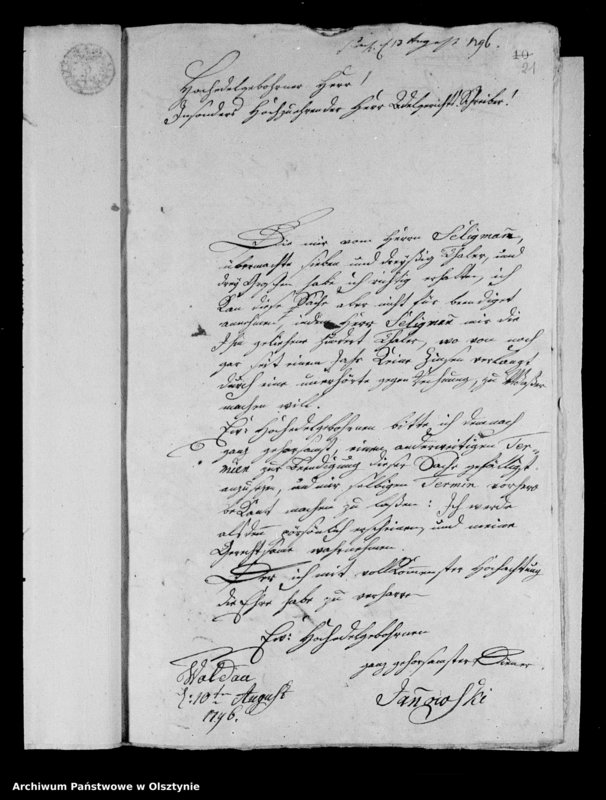 d 13 August 1796.
10
21
Hochedelgebohrner Herr!
Insonders Hochzuehrender Herr Schreiber!
Die mir vom Herrn Seligmañ,
übermachte sieben und dreyßig Thaler, und
drey Groschen habe ich richtig erhalten, ich
Kan diese Sache aber nicht für beendiget
annehmen, indem Herr Seligmañ mir die
Ihm geliehene hundert Thaler, wo von noch
gar seit einem Jahr Keine Zinsen verlangt
durch eine unerhörte gegen Rechnung, zu Waßer
machen will.
Ew: Hochedelgebohrnen bitte ich demnach
ganz gehorsamst, einen anderweitigen Ter-
mien zur Beendigung dieser Sache gefälligst
anzusetzen, und mir selbigen Termin vorhero
beKant machen zu laßen: Ich werde
alsdenn persönlich erscheinen, und meine
Gerechtsame wahrnehmen.
Der ich mit vollKommenster Hochachtung
die Ehre habe zu verharren
Ew: Hochedelgebohrnen
Waldau
d: 10ten August
1796.
ganz gehorsamster Diener
Archiwum Państwowe w Olsztynie